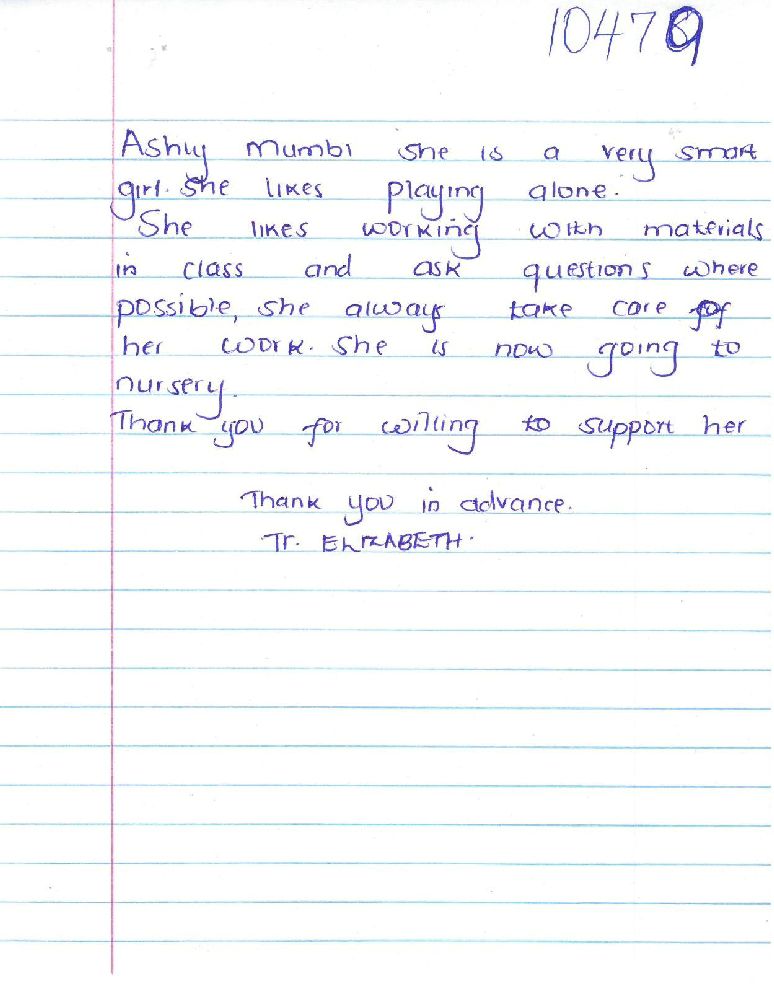 10479
Ashly Mumbi she is a very smart
girl. She likes playing alone.
She likes working with materials
in class and ask questions where
possible, she always take care of
her work. She is now going to
nursery.
Thank you for willing to support her
Thank you in advance.
Tr. ELIZABETH.